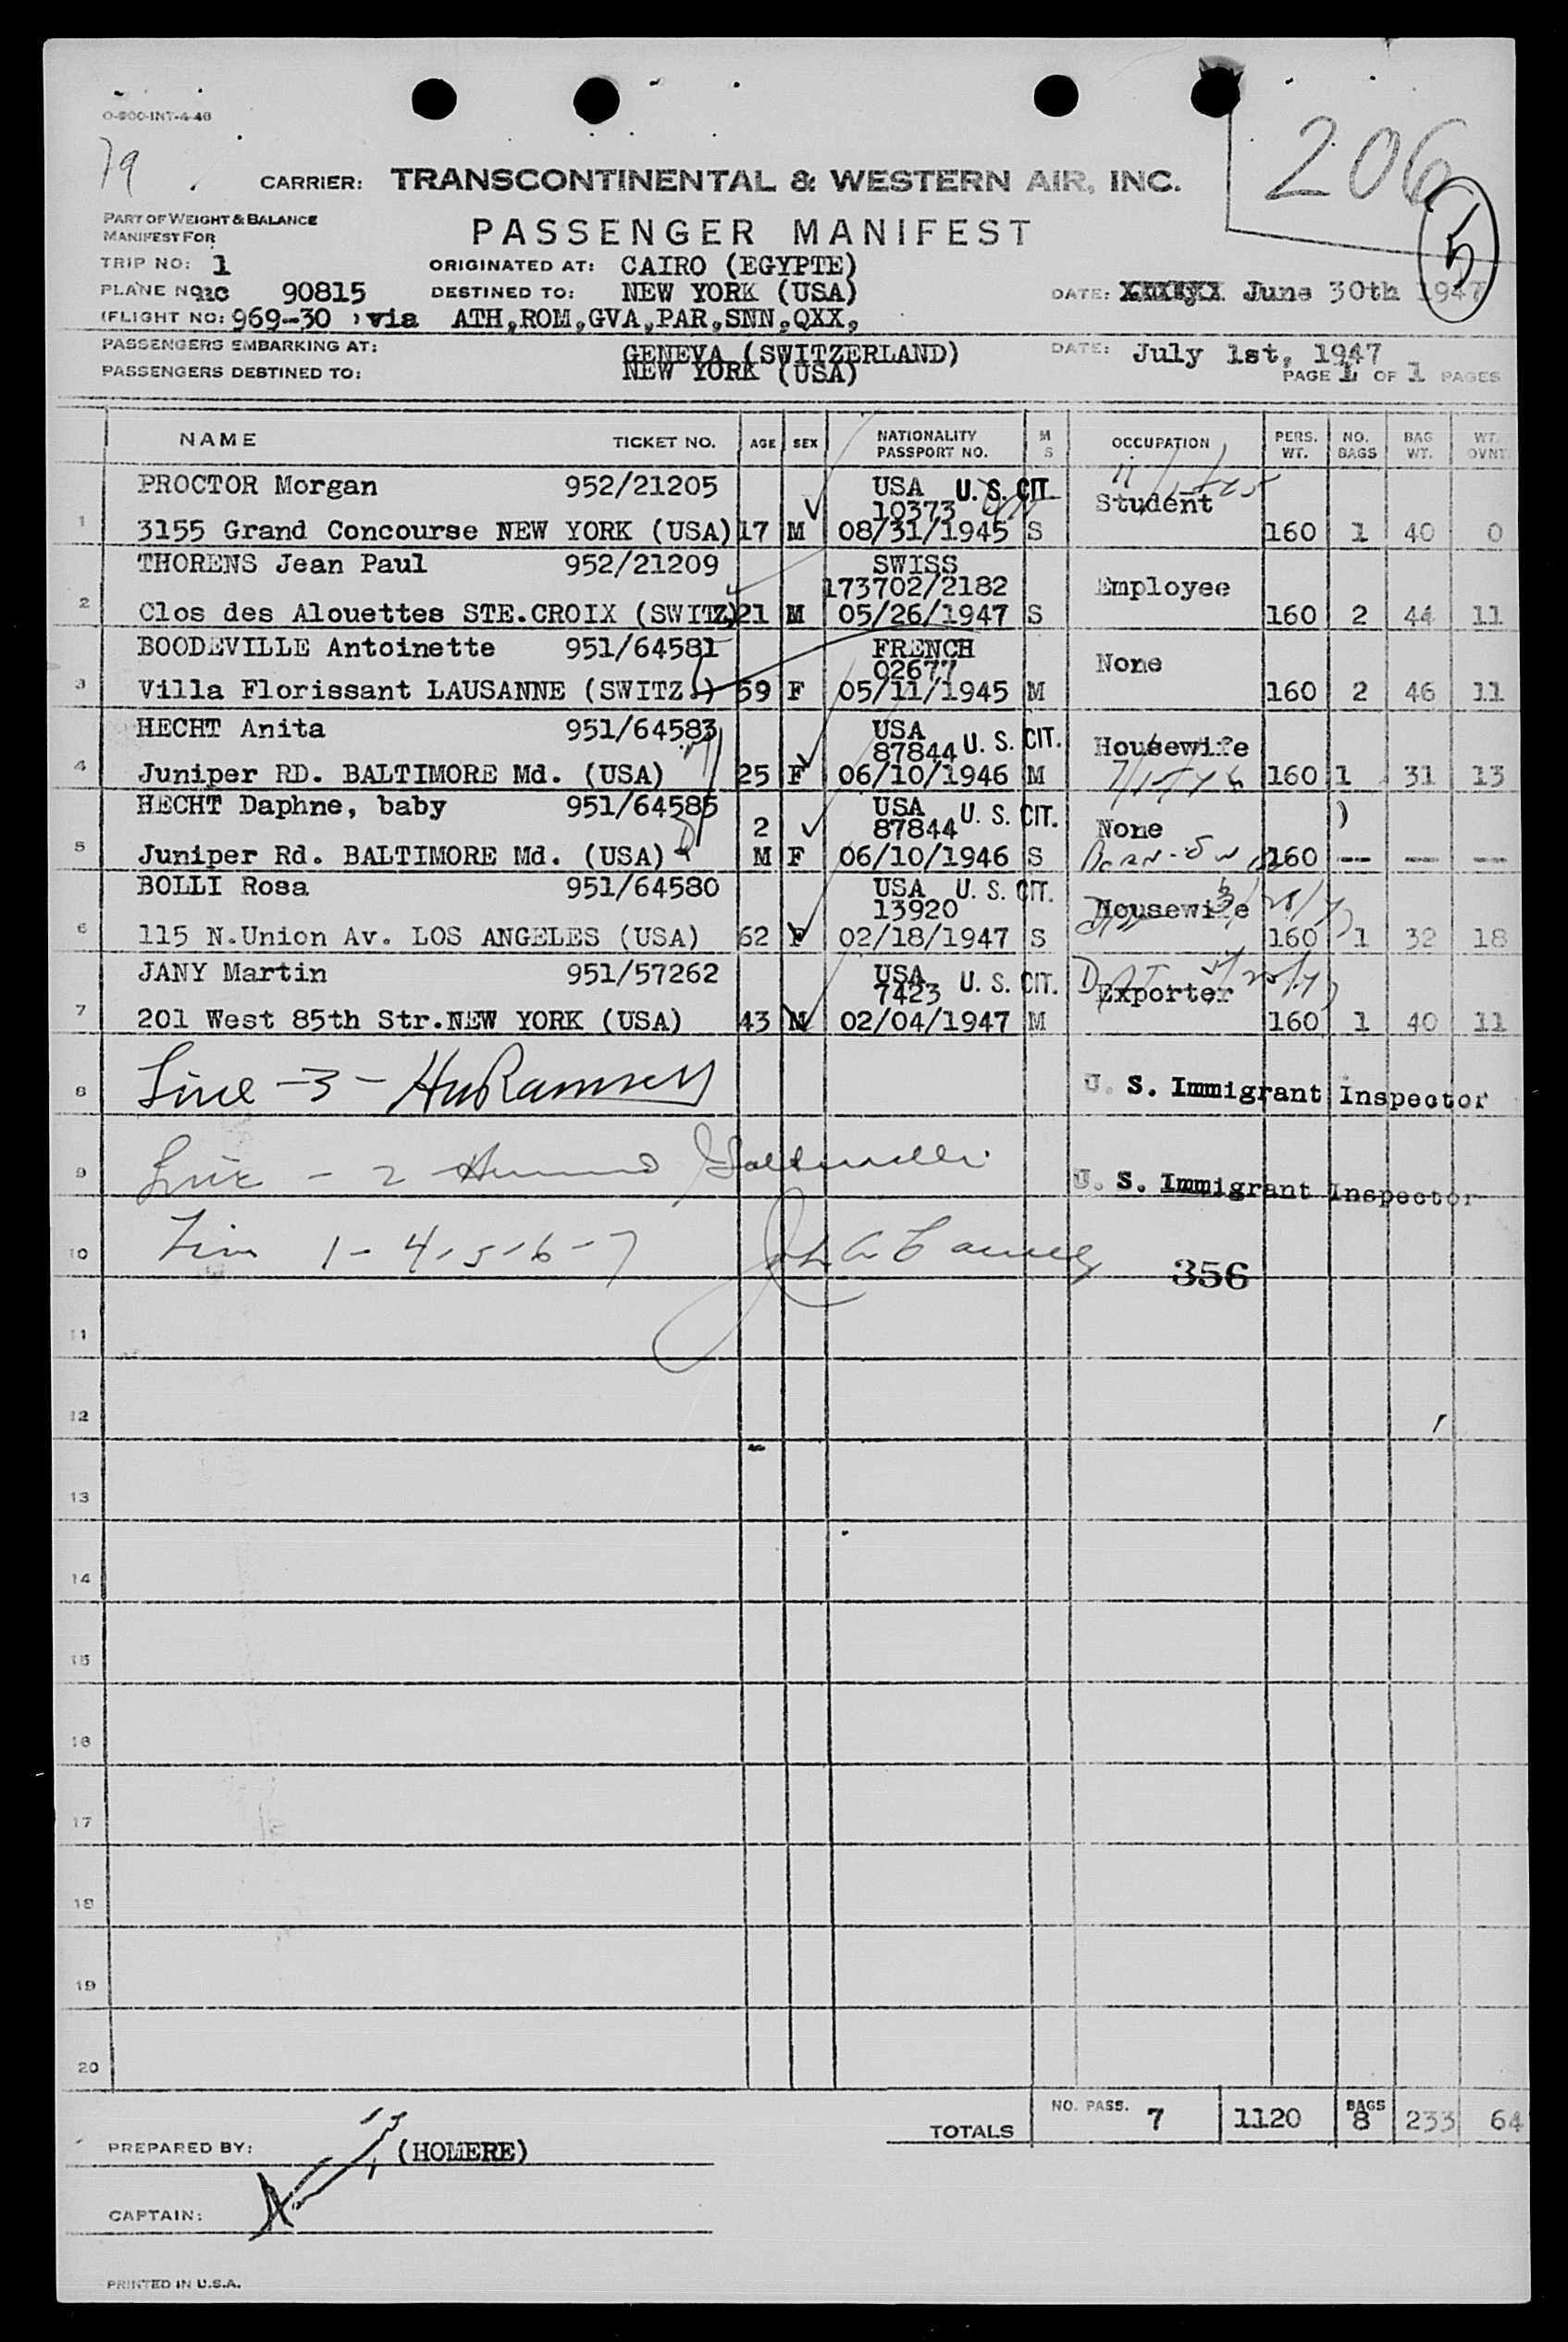 O-900-INT-4-46
79
206
5
CARRIER: TRANSCONTINENTAL & WESTERN AIR, INC.
PART OF WEIGHT & BALANCE
MANIFEST FOR
PASSENGER MANIFEST
TRIP NO: 1 ORIGINATED AT: CAIRO (EGYPTE)
PLANE NO: nc 90815 DESTINED TO: NEW YORK (USA) DATE: June 30th 1947
(FLIGHT NO: 969-30 ) via ATH,ROM,GVA,PAR,SNN,QXX,
PASSENGERS EMBARKING AT: GENEVA (SWITZERLAND) DATE: July 1st, 1947
PASSENGERS DESTINED TO: NEW YORK (USA) PAGE 1 OF 1 PAGES
NAME TICKET NO. AGE SEX NATIONALITY PASSPORT NO. M S OCCUPATION PERS. WT. NO. BAGS BAG WT. WT. OVNT.
PROCTOR Morgan 952/21205 USA U. S. CIT.
10373 Student
1 3155 Grand Concourse NEW YORK (USA) 17 M 08/31/1945 S 160 1 40 0
THORENS Jean Paul 952/21209 SWISS
173702/2182 Employee
2 Clos des Alouettes STE.CROIX (SWITZ) 21 M 05/26/1947 S 160 2 44 11
BOODEVILLE Antoinette 951/64581 FRENCH
02677 None
3 Villa Florissant LAUSANNE (SWITZ.) 59 F 05/11/1945 M 160 2 46 11
HECHT Anita 951/64583 USA
87844 U. S. CIT. Housewife
4 Juniper RD. BALTIMORE Md. (USA) 25 F 06/10/1946 M 7/15/46 160 1 31 13
HECHT Daphne, baby 951/64585 USA U. S. CIT. )
2 87844 None
5 Juniper Rd. BALTIMORE Md. (USA) M F 06/10/1946 S 160 -- -- --
BOLLI Rosa 951/64580 USA U. S. CIT.
13920 Housewife
6 115 N.Union Av. LOS ANGELES (USA) 62 F 02/18/1947 S 160 1 32 18
JANY Martin 951/57262 USA U. S. CIT.
7423 Exporter
7 201 West 85th Str.NEW YORK (USA) 43 M 02/04/1947 M 160 1 40 11
8 Line -3- U. S. Immigrant Inspector
9 Line - 2 U. S. Immigrant Inspector
10 1-4-5-6-7
356
11
12
13
14
15
16
17
18
19
20
TOTALS NO. PASS. 7 1120 BAGS 8 233 64
PREPARED BY: (HOMERE)
CAPTAIN:
PRINTED IN U.S.A.